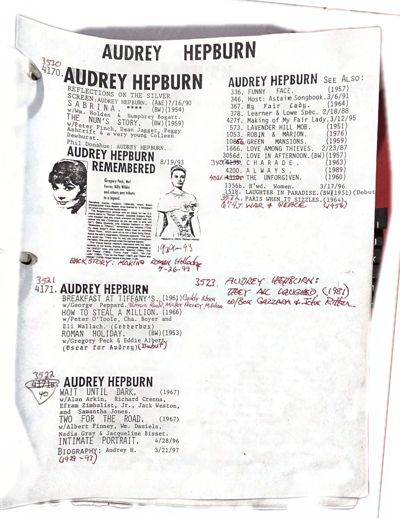 AUDREY HEPBURN
3520
4170. AUDREY HEPBURN
REFLECTIONS ON THE SILVER
SCREEN: AUDREY HEPBURN. (A&E)7/16/90
SABRINA. **** (BW)(1954)
w/Wm. Holden & Humphrey Bogart.
THE NUN'S STORY. (BW)(1959)
w/Peter Finch, Dean Jagger, Peggy
Ashcrift & a very young Colleen
Dewhurst.
Phil Donahue: AUDREY HEPBURN.
AUDREY HEPBURN 8/19/93
REMEMBERED
Gregory Peck, Blake
1929-93
BACK STORY: MAKING ROMAN Holiday
9-26-99
3521
4171. AUDREY HEPBURN
BREAKFAST AT TIFFANY'S. (1961) Buddy Ebsen
w/George Peppard.
HOW TO STEAL A MILLION. (1966)
w/Peter O'Toole, Cha. Boyer and
Eli Wallach.
ROMAN HOLIDAY. (BW)(1953)
w/Gregory Peck & Eddie Albert.
(Oscar for Audrey)(Debut)
3522
40
AUDREY HEPBURN
WAIT UNTIL DARK. (1967)
w/Alan Arkin, Richard Crenna,
Efram Zimbalist, Jr., Jack Weston,
and Samantha Jones.
TWO FOR THE ROAD. (1967)
w/Albert Finney, Wm. Daniels,
Nadia Gray & Jacqueline Bisset.
INTIMATE PORTRAIT. 4/28/96
BIOGRAPHY: Audrey H. 3/21/97
(1929-93)
AUDREY HEPBURN SEE ALSO:
336. FUNNY FACE. (1957)
346. Host: Astaire Songbook.3/6/91
367. My Fair Lady. (1964)
378. Learner & Lowe Spec. 2/18/88
427f. Making of My Fair Lady.3/12/95
573. LAVENDER HILL MOB. (1951)
1053. ROBIN & MARION. (1976)
GREEN MANSIONS. (1959)
1666. LOVE AMONG THIEVES. 2/23/87
3056d. LOVE IN AFTERNOON.(BW)(1957)
CHARADE. (1963)
4200. ALWAYS. (1989)
THE UNFORGIVEN. (1960)
1356b. H'wd. Women. 3/17/96
1518. LAUGHTER IN PARADISE.(BW)(1951)(Debut
PARIS WHEN IT SIZZLES. (1964)
WAR & PEACE (1956)
3523. AUDREY HEPBURN:
THEY ALL LAUGHED. (1981)
w/Ben Gazzara & John Ritter